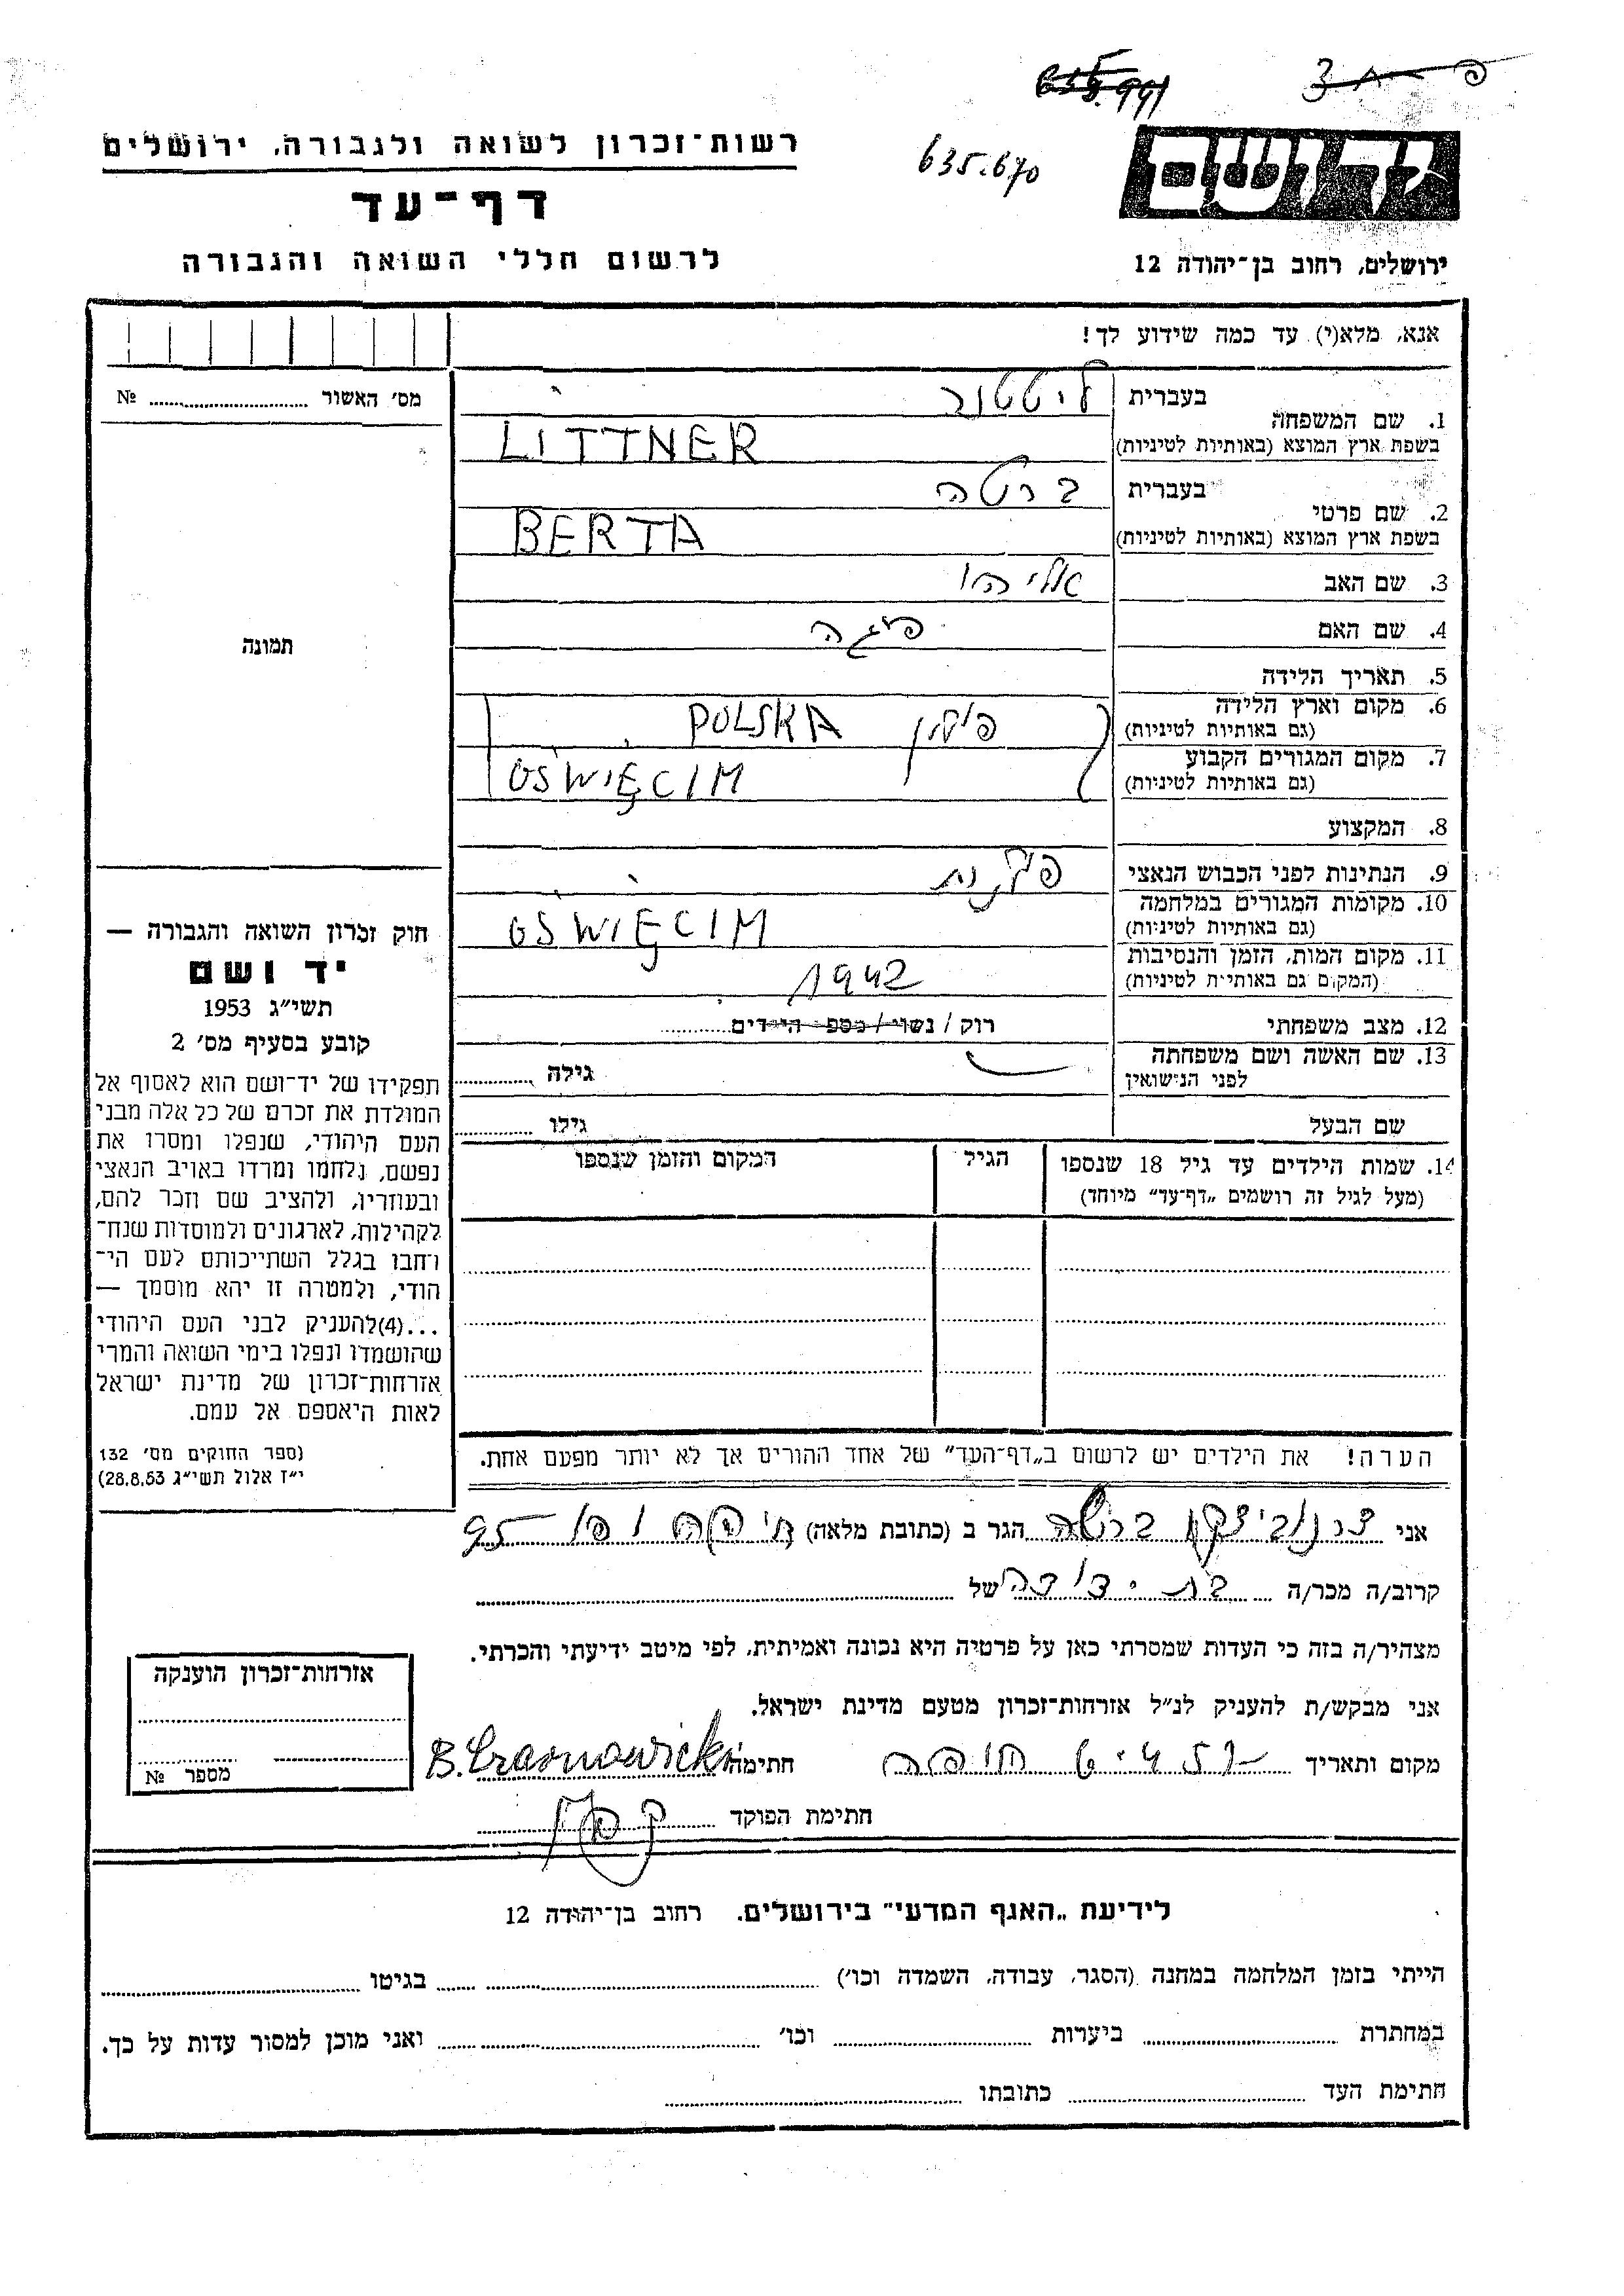 635.670
יד ושם
ירושלים, רחוב בן־יהודה 12
רשות־זכרון לשואה ולגבורה, ירושלים
דף־עד
לרשום חללי השואה והגבורה
אנא, מלא(י) עד כמה שידוע לך!
מס׳ האשור № ........
תמונה
1. שם המשפחה בעברית ליטטנר
בשפת ארץ המוצא (באותיות לטיניות) LITTNER
2. שם פרטי בעברית ברטה
בשפת ארץ המוצא (באותיות לטיניות) BERTA
3. שם האב אליהו
4. שם האם פיגה
5. תאריך הלידה
6. מקום וארץ הלידה פולין POLSKA
(גם באותיות לטיניות)
7. מקום המגורים הקבוע OŚWIĘCIM
(גם באותיות לטיניות)
8. המקצוע
9. הנתינות לפני הכבוש הנאצי פולנית
10. מקומות המגורים במלחמה OŚWIĘCIM
(גם באותיות לטיניות)
11. מקום המות, הזמן והנסיבות 1942
(המקום גם באותיות לטיניות)
12. מצב משפחתי רוק / נשוי / מספר הילדים ........
13. שם האשה ושם משפחתה לפני הנישואין גילה ........
שם הבעל גילו ........
14. שמות הילדים עד גיל 18 שנספו הגיל המקום והזמן שנספו
(מעל לגיל זה רושמים „דף־עד״ מיוחד)
הערה! את הילדים יש לרשום ב„דף־העד״ של אחד ההורים אך לא יותר מפעם אחת.
חוק זכרון השואה והגבורה —
יד ושם
תשי״ג 1953
קובע בסעיף מס׳ 2
תפקידו של יד־ושם הוא לאסוף אל
המולדת את זכרם של כל אלה מבני
העם היהודי, שנפלו ומסרו את
נפשם, נלחמו ומרדו באויב הנאצי
ובעוזריו, ולהציב שם וזכר להם,
לקהילות, לארגונים ולמוסדות שנח־
רחבו בגלל השתייכותם לעם הי־
הודי, ולמטרה זו יהא מוסמך —
...(4)להעניק לבני העם היהודי
שהושמדו ונפלו בימי השואה והמרי
אזרחות־זכרון של מדינת ישראל
לאות היאספם אל עמם.
(ספר החוקים מס׳ 132
י״ז אלול תשי״ג 28.8.53)
אני ברטה הגר ב (כתובת מלאה) חיפה 95
קרוב/ה מכר/ה בת · דודה של ........
מצהיר/ה בזה כי העדות שמסרתי כאן על פרטיה היא נכונה ואמיתית, לפי מיטב ידיעתי והכרתי.
אני מבקש/ת להעניק לנ״ל אזרחות־זכרון מטעם מדינת ישראל.
מקום ותאריך חיפה חתימה
חתימת הפוקד
אזרחות־זכרון הוענקה
מספר №
לידיעת „האגף המדעי״ בירושלים. רחוב בן־יהודה 12
הייתי בזמן המלחמה במחנה (הסגר, עבודה, השמדה וכו׳) ........ בגיטו ........
במחתרת ........ ביערות ........ וכו׳ ........ ואני מוכן למסור עדות על כך.
חתימת העד ........ כתובתו ........